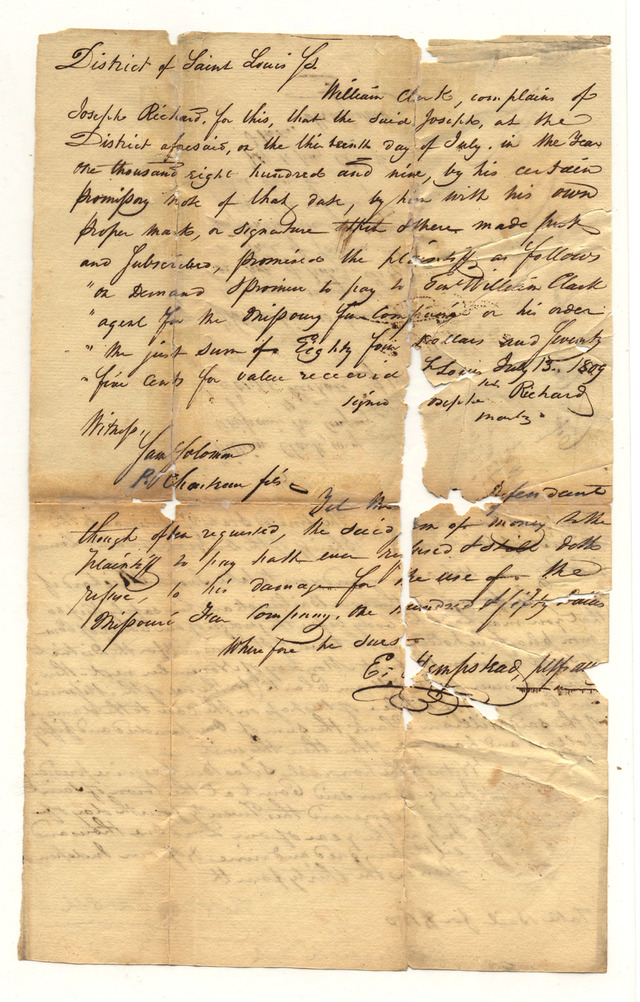 District of Saint Louis Ss.
William Clark, complains of
Joseph Richard, for this, that the said Joseph, at the
District aforesaid, on the thirteenth day of July, in the Year
one thousand eight hundred and nine, by his certain
promissory note of that date, by him with his own
proper mark, or signature thereto made
and subscribed, promised the plaintiff as follows
"on Demand I promise to pay to Genl William Clark
"agent for the Missoury fur Company or his order
"the just sum of Eighty four Dollars and seventy
"five cents for value received St Louis July 13th 1809
signed Joseph Richard
mark"
Witness,
Saml Solomon
Chouteau fils
Yet the Defendant
though often requested, the said sum of money to the
plaintiff to pay hath ever refused & still doth
refuse, to his damage for the use of the
Missouri Fur Company, one hundred & fifty dollars
Wherefore he sues
E. Hempstead, plffs atty